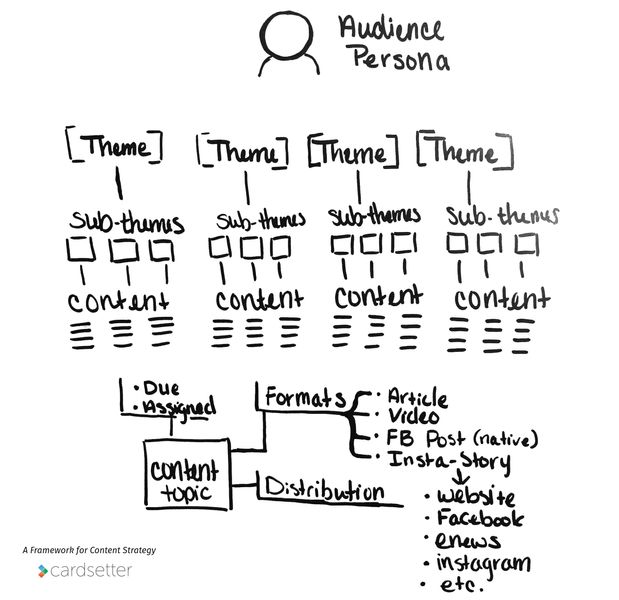 Audience
Persona
[Theme] [Theme] [Theme] [Theme]
Sub-themes sub-themes sub-themes sub-themes
content content content content
• Due
• Assigned
Formats
• Article
• Video
• FB Post (native)
• Insta-Story
content
topic
Distribution
• website
• Facebook
• enews
• instagram
• etc.
A Framework for Content Strategy
cardsetter